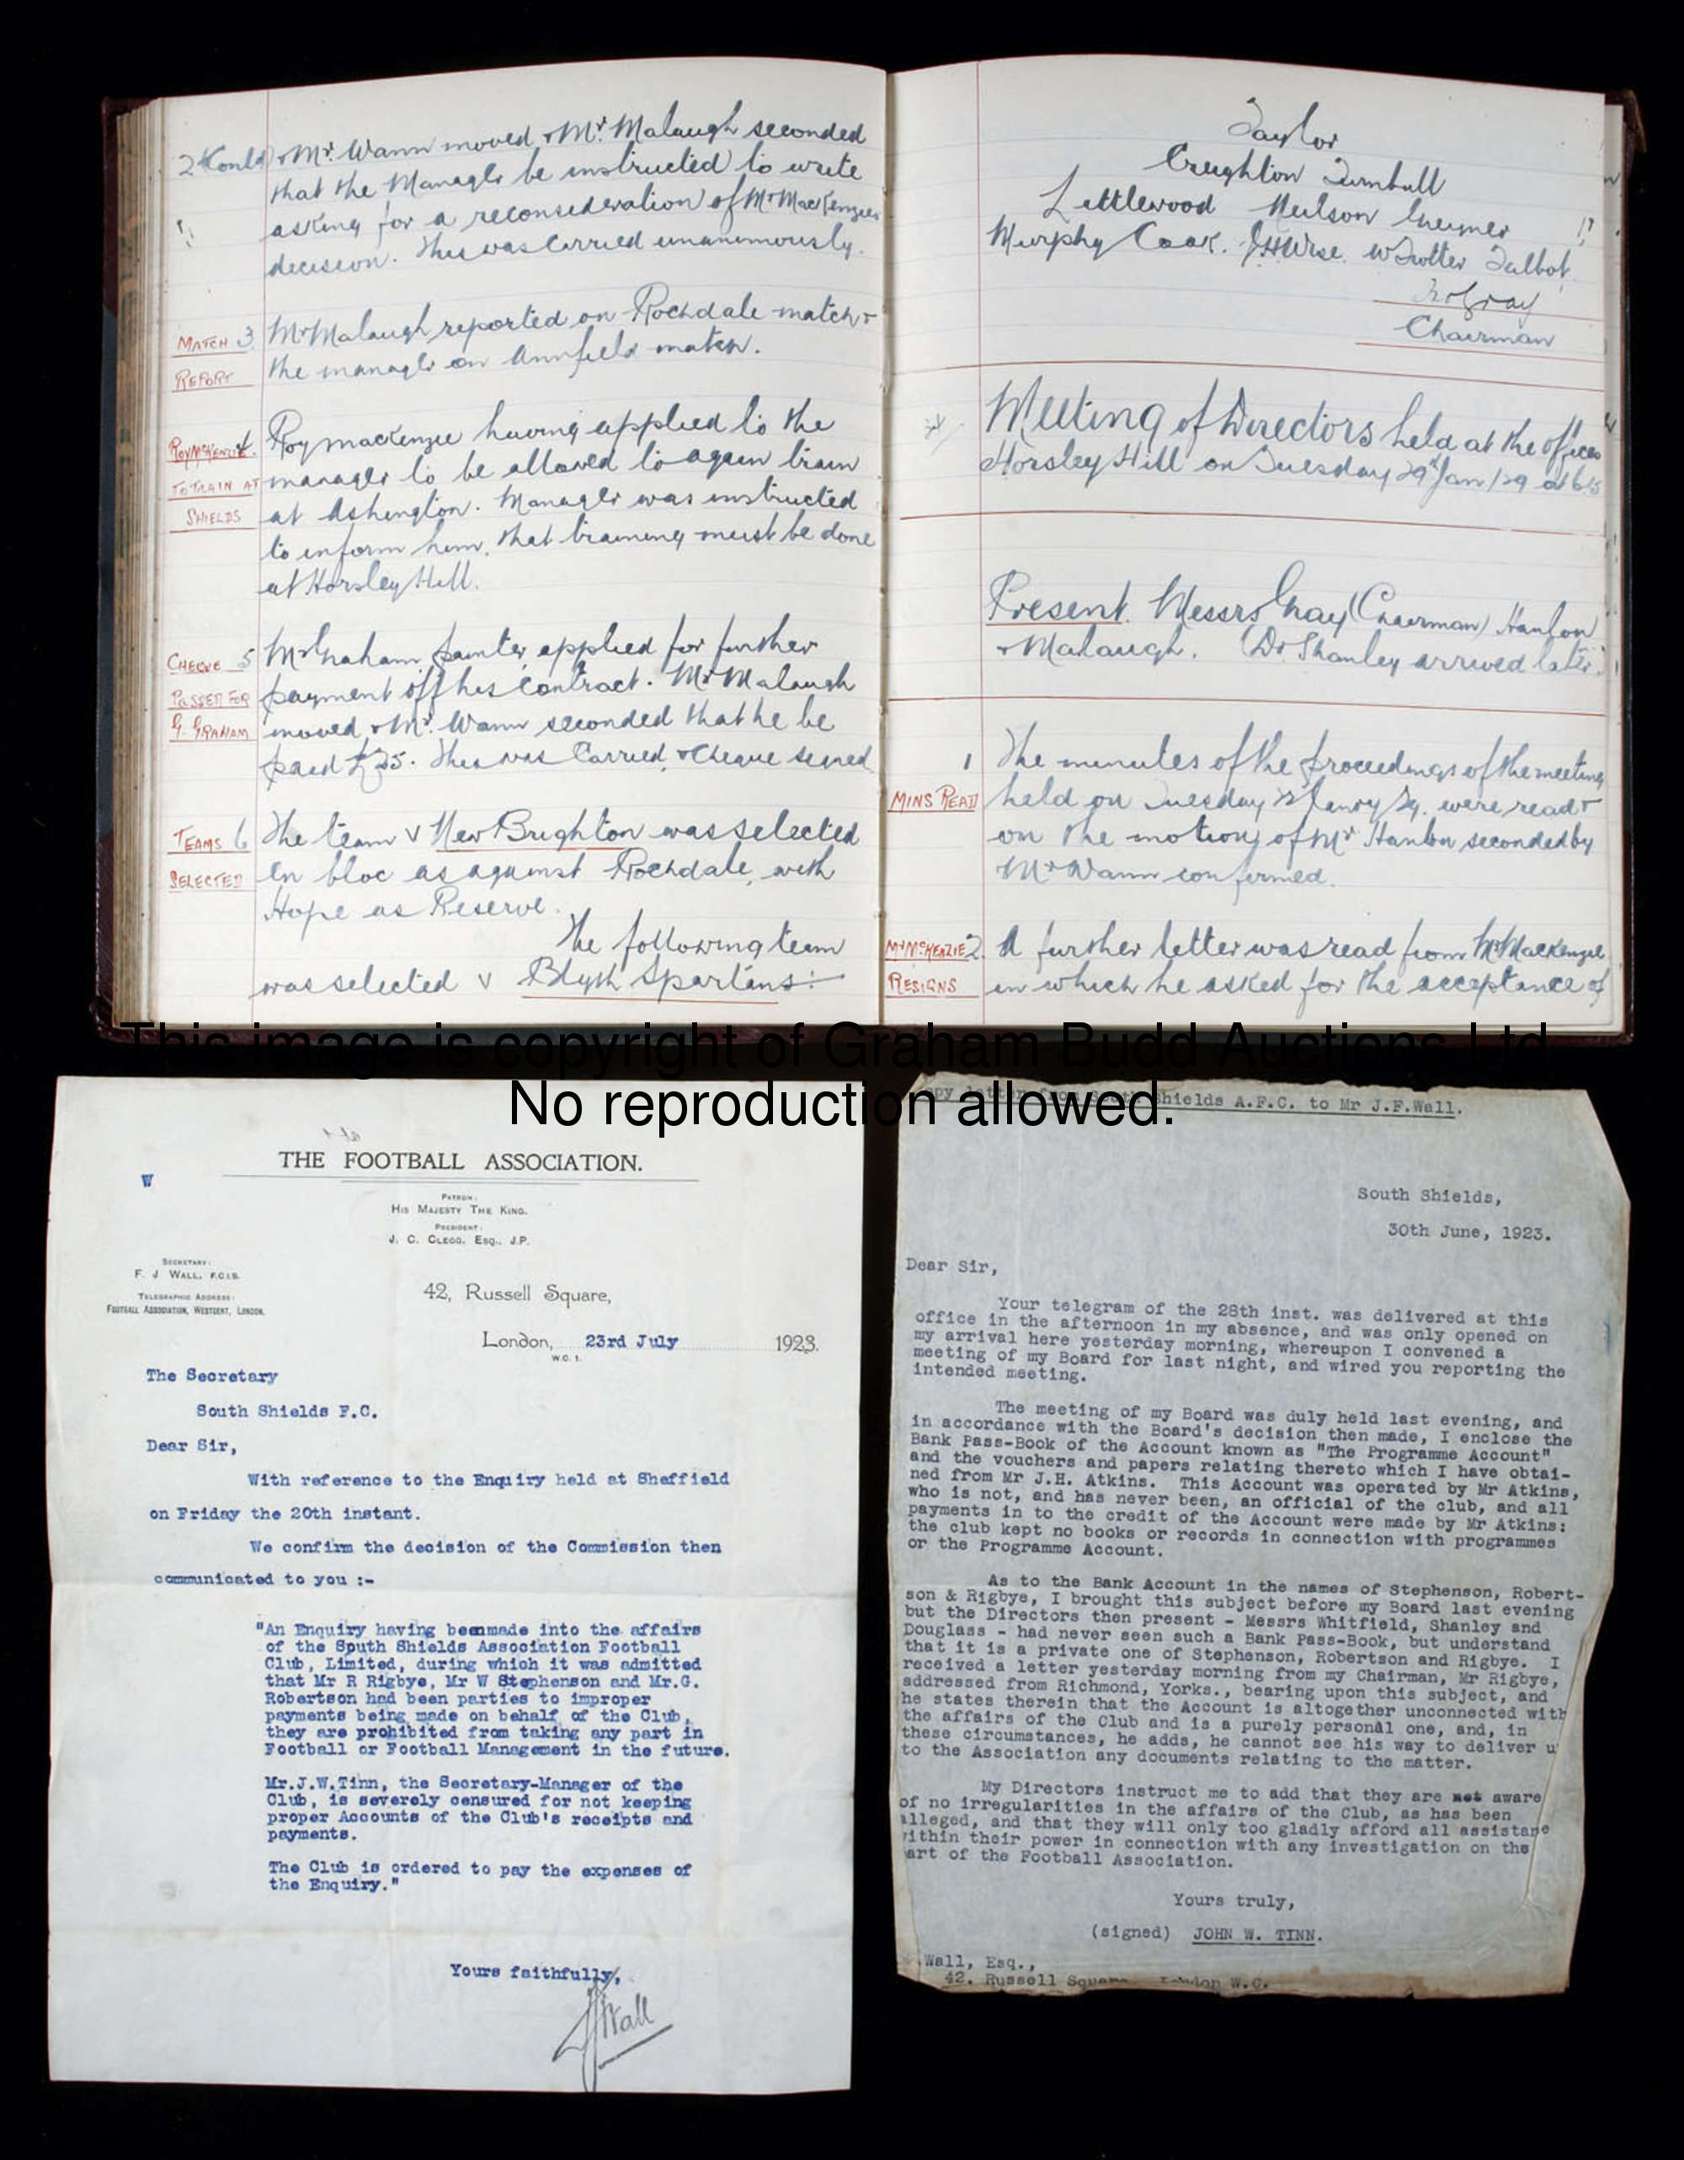 2 Contd + Mr. Wann moved + Mr. Malaugh seconded
that the Manager be instructed to write
asking for a reconsideration of Mr MacKenzies
decision. This was Carried unanimously.
MATCH 3 REPORT
Mr Malaugh reported on Rochdale match +
the manager on Annfield match.
ROY McKENZIE 4. TO TRAIN AT SHIELDS
Roy MacKenzie having applied to the
manager to be allowed to again train
at Ashington. Manager was instructed
to inform him, that training must be done
at Horsley Hill.
CHEQUE 5 PASSED FOR G. GRAHAM
Mr Graham painter, applied for further
payment off his contract. Mr Malaugh
moved + Mr. Wann seconded that he be
paid £25. This was Carried, + Cheque signed
TEAMS 6 SELECTED
The team v New Brighton was selected
en bloc as against Rochdale, with
Hope as Reserve.
The following team
was selected v Blyth Spartans:-
Taylor
Creighton Turnbull
Littlewood Neilson
Murphy Cook. J.H. Wise. W Trotter Talbot.
Gray
Chairman
Meeting of Directors held at the offices
Horsley Hill on Tuesday 29th Jan/29 at 6
Present. Messrs Gray (Chairman) Hanlon
+ Malaugh. (Dr. Shanley arrived later.
1 MINS READ
The minutes of the proceedings of the meeting
held on Tuesday 22 29. were read +
on the motion of Mr Hanlon seconded by
Mr Wann confirmed.
Mr McKENZIE 2. RESIGNS
A further letter was read from Mr MacKenzie
in which he asked for the acceptance of
This image is copyright of Graham Budd Auctions Ltd
No reproduction allowed.
THE FOOTBALL ASSOCIATION.
W
PATRON:
HIS MAJESTY THE KING.
PRESIDENT:
J. C. CLEGG. ESQ., J.P.
SECRETARY:
F. J WALL, F.C.I.S.
TELEGRAPHIC ADDRESS:
FOOTBALL ASSOCIATION, WESTCENT, LONDON.
42, Russell Square,
London, 23rd July 1923.
W.C. 1.
The Secretary
South Shields F.C.
Dear Sir,
With reference to the Enquiry held at Sheffield
on Friday the 20th instant.
We confirm the decision of the Commission then
communicated to you :-
"An Enquiry having beenmade into the affairs
of the South Shields Association Football
Club, Limited, during which it was admitted
that Mr R Rigbye, Mr W Stephenson and Mr.G.
Robertson had been parties to improper
payments being made on behalf of the Club,
they are prohibited from taking any part in
Football or Football Management in the future.
Mr.J.W.Tinn, the Secretary-Manager of the
Club, is severely censured for not keeping
proper Accounts of the Club's receipts and
payments.
The Club is ordered to pay the expenses of
the Enquiry."
Yours faithfully,
FJWall
opy letter from South Shields A.F.C. to Mr J.F.Wall.
South Shields,
30th June, 1923.
Dear Sir,
Your telegram of the 28th inst. was delivered at this
office in the afternoon in my absence, and was only opened on
my arrival here yesterday morning, whereupon I convened a
meeting of my Board for last night, and wired you reporting the
intended meeting.
The meeting of my Board was duly held last evening, and
in accordance with the Board's decision then made, I enclose the
Bank Pass-Book of the Account known as "The Programme Account"
and the vouchers and papers relating thereto which I have obtai-
ned from Mr J.H. Atkins. This Account was operated by Mr Atkins,
who is not, and has never been, an official of the club, and all
payments in to the credit of the Account were made by Mr Atkins:
the club kept no books or records in connection with programmes
or the Programme Account.
As to the Bank Account in the names of Stephenson, Robert-
son & Rigbye, I brought this subject before my Board last evening
but the Directors then present - Messrs Whitfield, Shanley and
Douglass - had never seen such a Bank Pass-Book, but understand
that it is a private one of Stephenson, Robertson and Rigbye. I
received a letter yesterday morning from my Chairman, Mr Rigbye,
addressed from Richmond, Yorks., bearing upon this subject, and
he states therein that the Account is altogether unconnected with
the affairs of the Club and is a purely personal one, and, in
these circumstances, he adds, he cannot see his way to deliver u
to the Association any documents relating to the matter.
My Directors instruct me to add that they are not aware
of no irregularities in the affairs of the Club, as has been
alleged, and that they will only too gladly afford all assistance
within their power in connection with any investigation on the
art of the Football Association.
Yours truly,
(signed) JOHN W. TINN.
Wall, Esq.,
42. Russell Square London W.C.